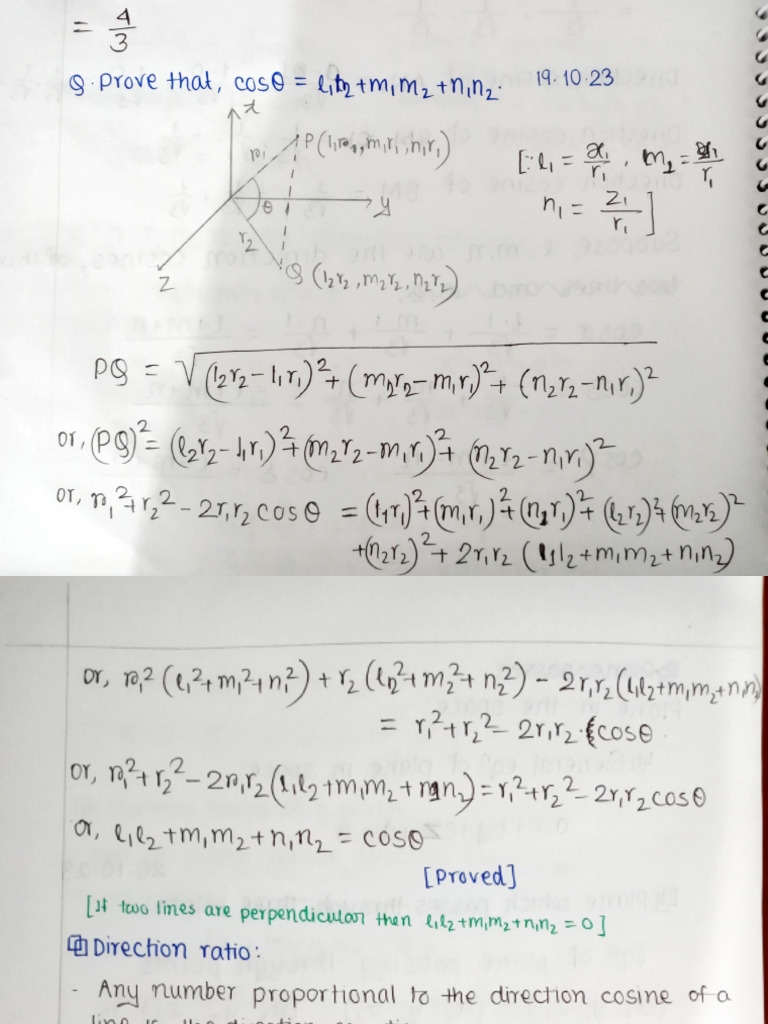 = 4/3
Q. Prove that, cosθ = l₁l₂+m₁m₂+n₁n₂. 19.10.23
x
r₁ P(l₁r₁, m₁r₁, n₁r₁) [∵ l₁ = x₁/r₁, m₁ = y₁/r₁
θ y n₁ = z₁/r₁]
r₂
z Q (l₂r₂, m₂r₂, n₂r₂)
PQ = √((l₂r₂-l₁r₁)²+(m₂r₂-m₁r₁)²+(n₂r₂-n₁r₁)²)
or, (PQ)² = (l₂r₂-l₁r₁)²+(m₂r₂-m₁r₁)²+(n₂r₂-n₁r₁)²
or, r₁²+r₂²-2r₁r₂cosθ = (l₁r₁)²+(m₁r₁)²+(n₁r₁)²+(l₂r₂)²+(m₂r₂)²
+(n₂r₂)²+2r₁r₂ (l₁l₂+m₁m₂+n₁n₂)
or, r₁²(l₁²+m₁²+n₁²)+r₂(l₂²+m₂²+n₂²)-2r₁r₂(l₁l₂+m₁m₂+n₁n₂)
= r₁²+r₂²-2r₁r₂.cosθ
or, r₁²+r₂²-2r₁r₂(l₁l₂+m₁m₂+n₁n₂)=r₁²+r₂²-2r₁r₂cosθ
or, l₁l₂+m₁m₂+n₁n₂ = cosθ
[Proved]
[If two lines are perpendicular then l₁l₂+m₁m₂+n₁n₂ = 0]
Direction ratio:
- Any number proportional to the direction cosine of a